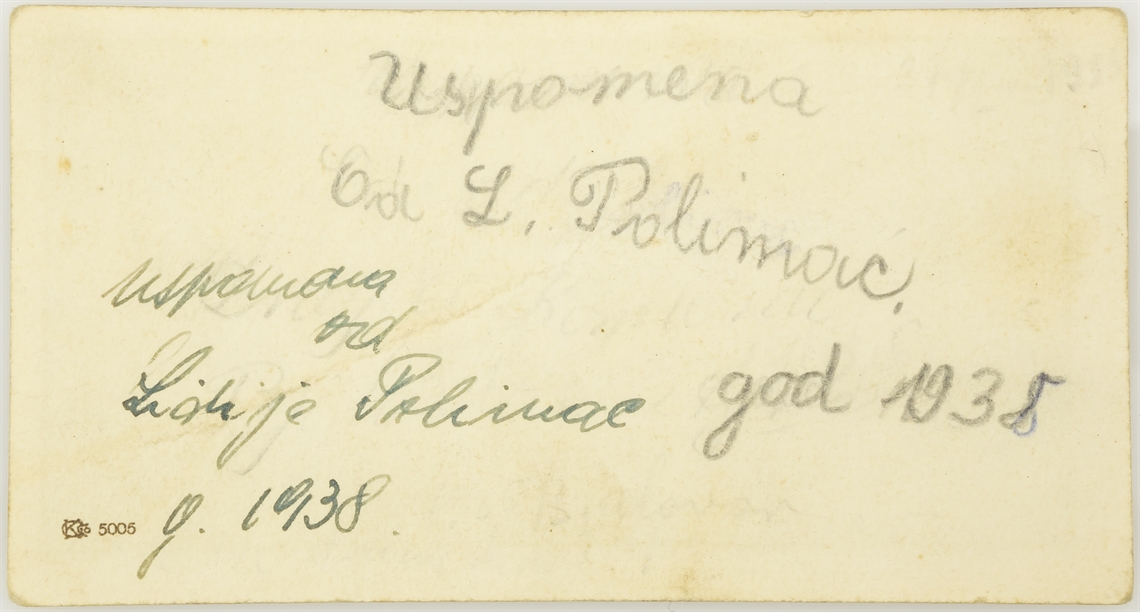 Uspomena
Od L. Polimac.
god 1938
uspomena
od
Lidije Polimac
g. 1938.
5005